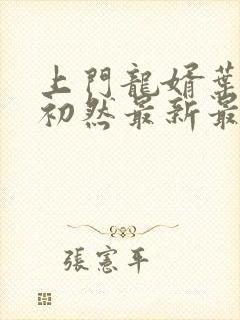 上門龍婿葉
初然最新最
張憲平